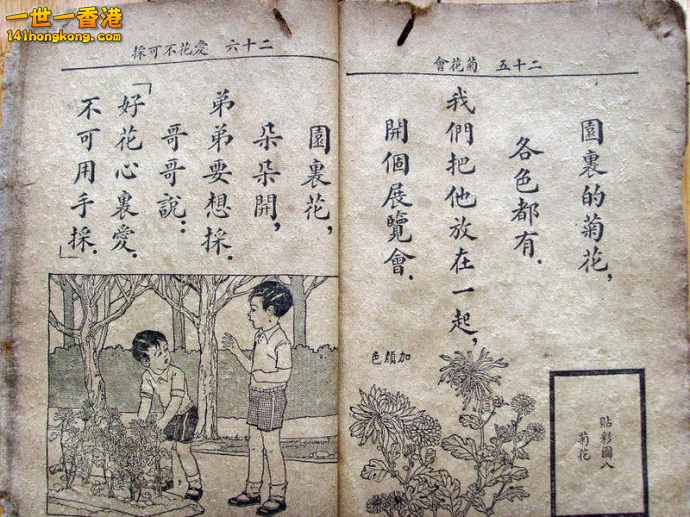 一世一香港
141hongkong.com
二十五 菊花會
園裏的菊花，
各色都有．
我們把他放在一起，
開個展覽會．
加顏色
貼彩圖八
菊花
二十六 愛花不可採
園裏花，
朵朵開，
弟弟要想採．
哥哥說：
「好花心裏愛．
不可用手採．」